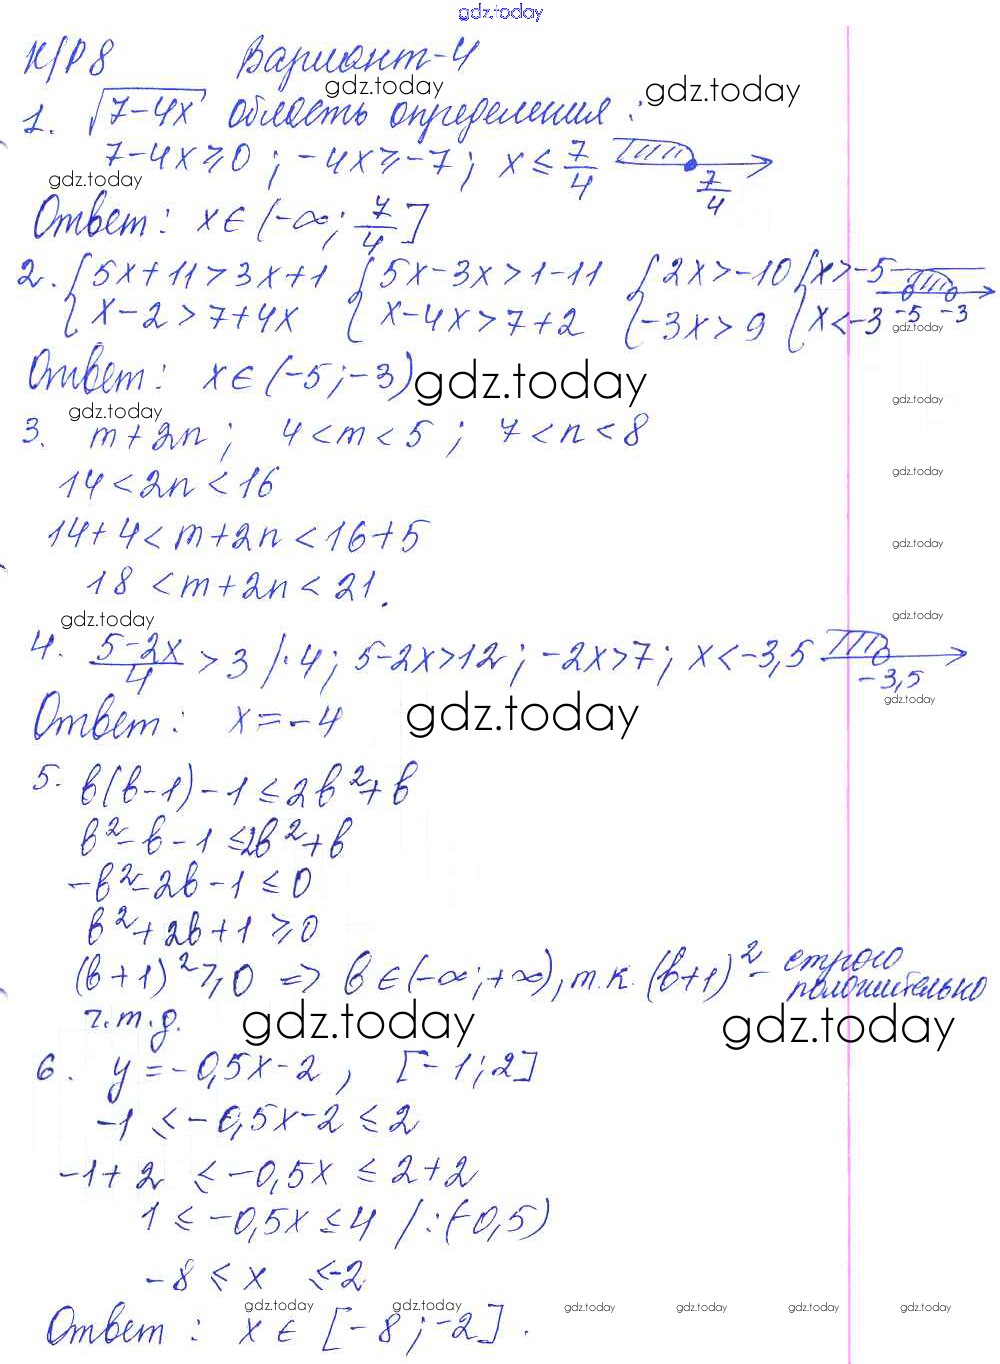 gdz.today
К/Р 8 Вариант-4
gdz.today gdz.today
1. √7-4x область определения :
7-4x⩾0 ; -4x⩾-7 ; x ≤ 7/4 7/4
gdz.today
Ответ : x∈(-∞; 7/4]
2. { 5x+11>3x+1 { 5x-3x>1-11 { 2x>-10 { x>-5
{ x-2>7+4x { x-4x>7+2 { -3x>9 { x<-3 -5 -3
gdz.today
Ответ : x∈(-5;-3) gdz.today gdz.today
gdz.today
3. m+2n ; 4<m<5 ; 7<n<8
gdz.today
14<2n<16
14+4<m+2n<16+5
gdz.today
18<m+2n<21.
gdz.today gdz.today
4. 5-2x/4 >3 /·4 ; 5-2x>12 ; -2x>7 ; x<-3,5 -3,5
gdz.today
Ответ : x=-4 gdz.today
5. b(b-1)-1≤2b²+b
b²-b-1≤2b²+b
-b²-2b-1≤0
b²+2b+1⩾0
(b+1)²⩾0 => b∈(-∞;+∞), т.к. (b+1)²- строго положительно
ч.т.д. gdz.today gdz.today
6. y=-0,5x-2 , [-1;2]
-1 ≤ -0,5x-2 ≤ 2
-1+2 ≤ -0,5x ≤ 2+2
1 ≤ -0,5x ≤ 4 /:(-0,5)
-8 ≤ x ≤-2
gdz.today gdz.today gdz.today gdz.today gdz.today gdz.today
Ответ : x∈ [-8;-2].